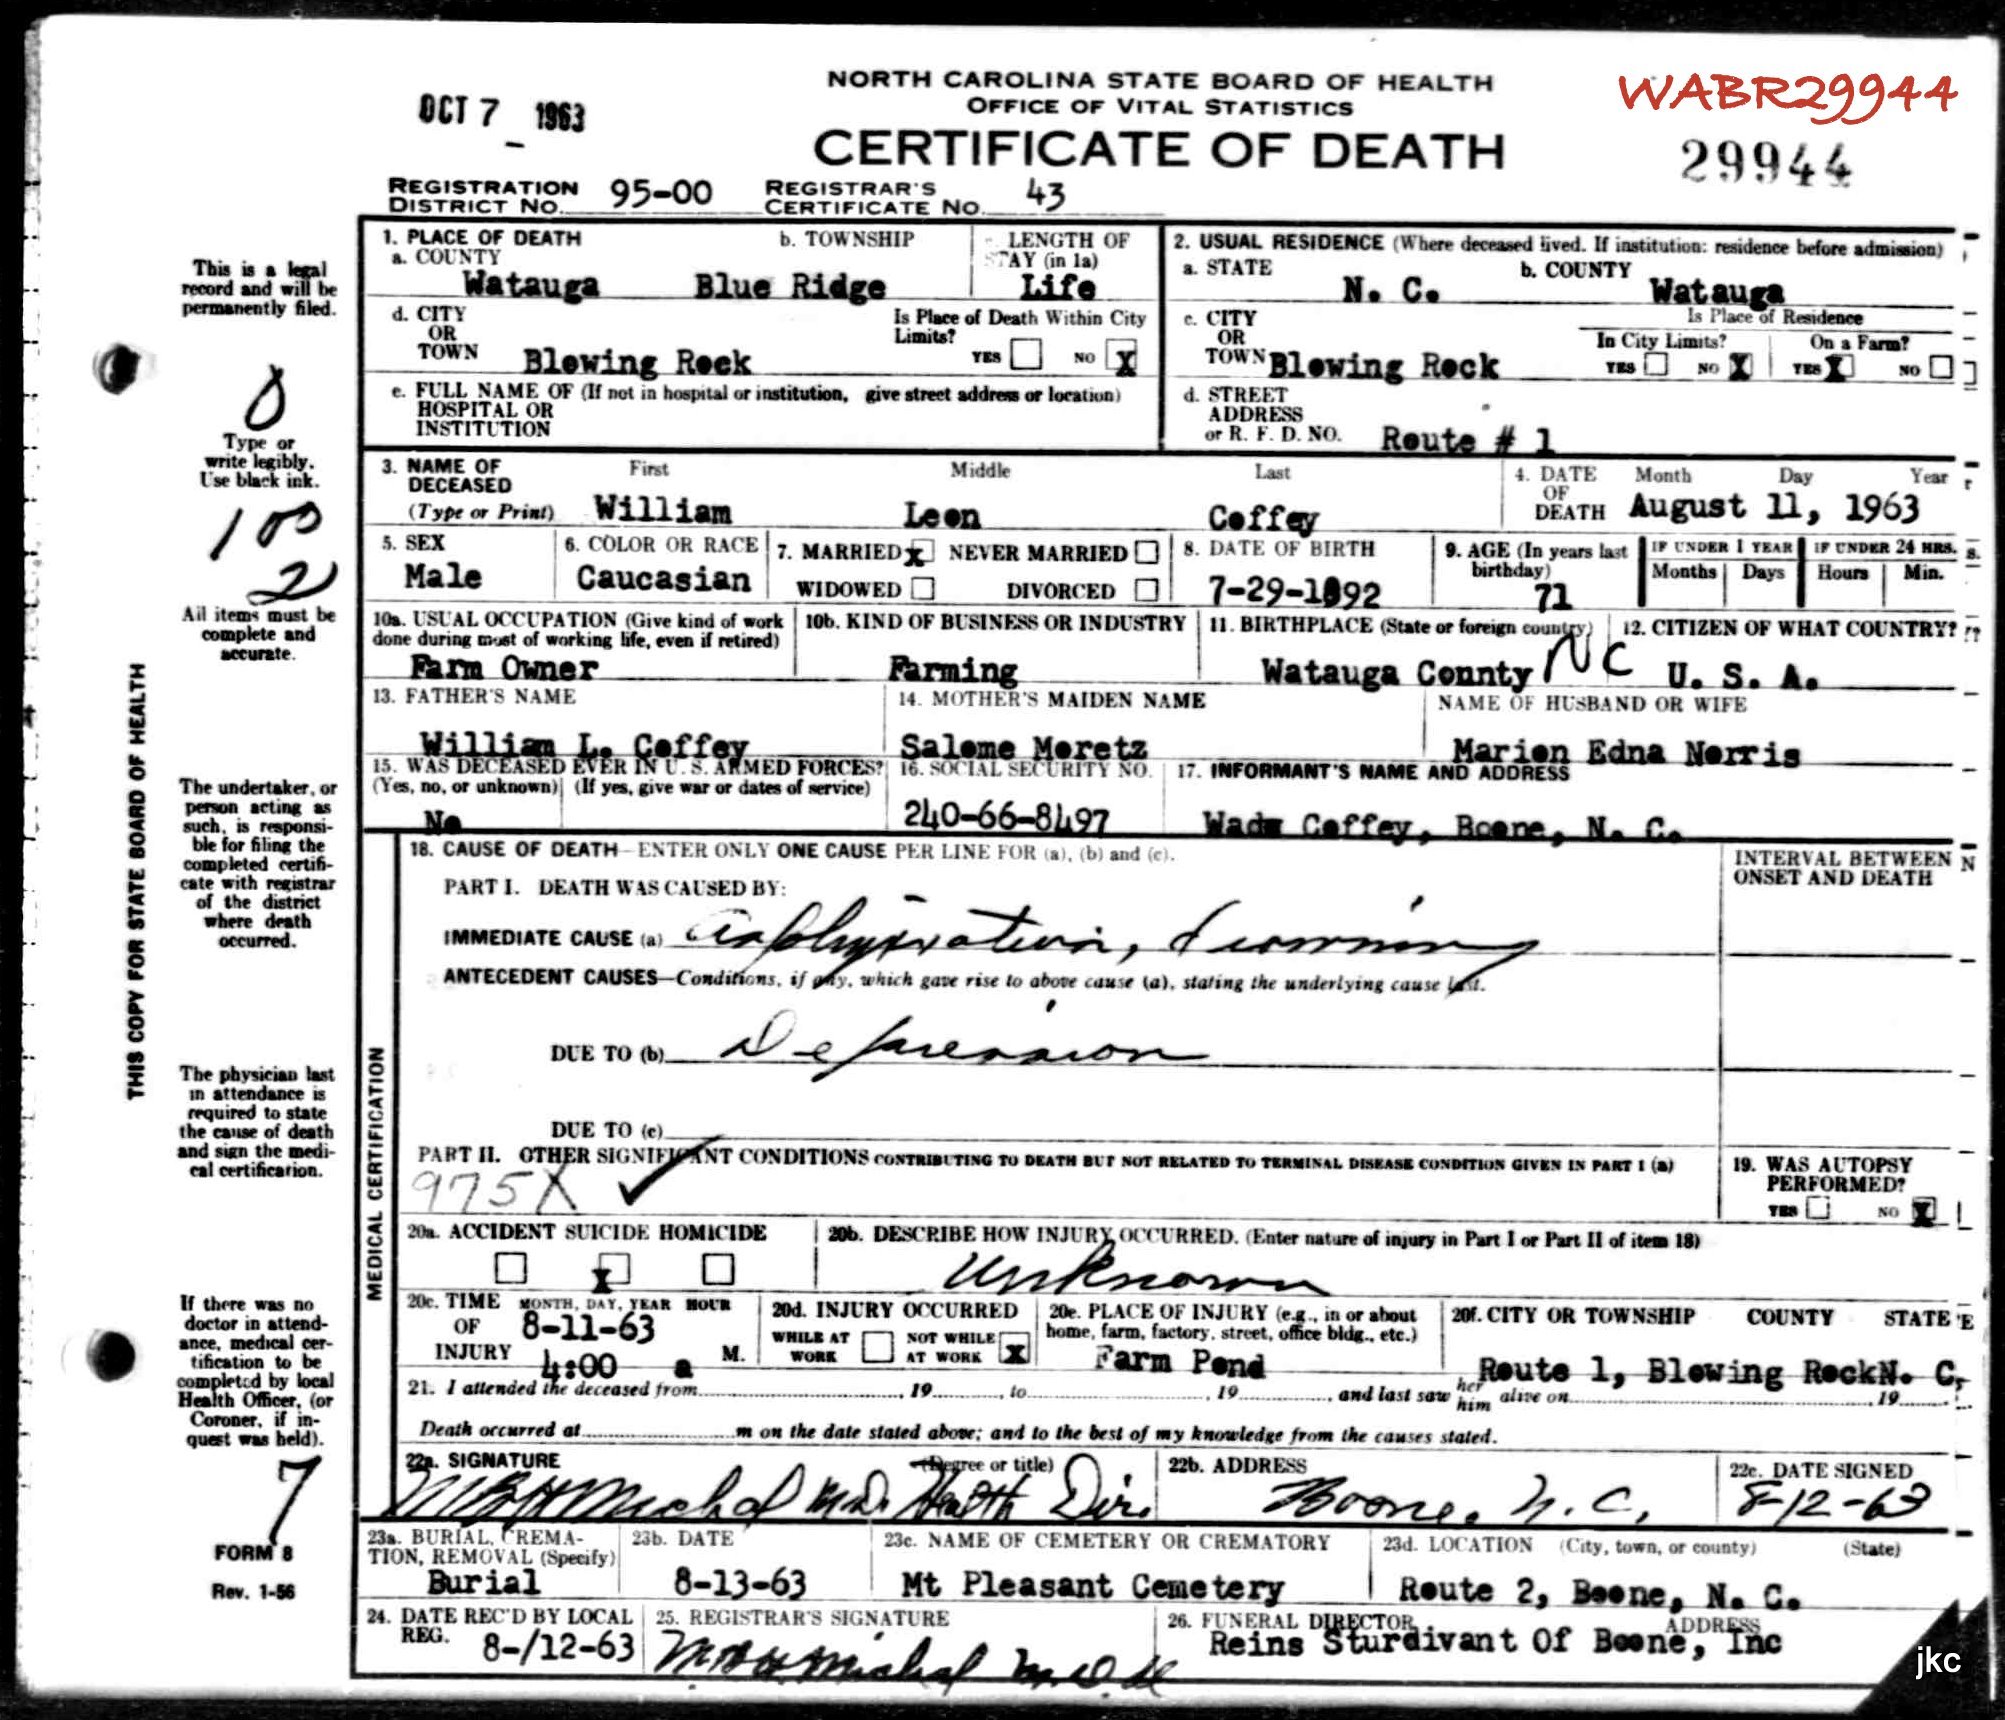 NORTH CAROLINA STATE BOARD OF HEALTH
OFFICE OF VITAL STATISTICS
CERTIFICATE OF DEATH
WABR29944
29944
OCT 7 1963
REGISTRATION DISTRICT NO. 95-00
REGISTRAR'S CERTIFICATE NO. 43
This is a legal
record and will be
permanently filed.
Type or
write legibly.
Use black ink.
100
2
All items must be
complete and
accurate.
THIS COPY FOR STATE BOARD OF HEALTH
The undertaker, or
person acting as
such, is responsi-
ble for filing the
completed certifi-
cate with registrar
of the district
where death
occurred.
The physician last
in attendance is
required to state
the cause of death
and sign the medi-
cal certification.
If there was no
doctor in attend-
ance, medical cer-
tification to be
completed by local
Health Officer, (or
Coroner, if in-
quest was held).
7
FORM 8
Rev. 1-56
1. PLACE OF DEATH
a. COUNTY
Watauga
b. TOWNSHIP
Blue Ridge
LENGTH OF
STAY (in 1a)
Life
2. USUAL RESIDENCE (Where deceased lived. If institution: residence before admission)
a. STATE
N. C.
b. COUNTY
Watauga
d. CITY
OR
TOWN Blowing Rock
Is Place of Death Within City
Limits?
YES NO X
c. CITY
OR
TOWN Blowing Rock
Is Place of Residence
In City Limits? On a Farm?
YES NO X YES X NO
e. FULL NAME OF (If not in hospital or institution, give street address or location)
HOSPITAL OR
INSTITUTION
d. STREET
ADDRESS
or R. F. D. NO. Route # 1
3. NAME OF
DECEASED
(Type or Print)
First Middle Last
William Leon Coffey
4. DATE
OF
DEATH
Month Day Year
August 11, 1963
5. SEX
Male
6. COLOR OR RACE
Caucasian
7. MARRIED X NEVER MARRIED
WIDOWED DIVORCED
8. DATE OF BIRTH
7-29-1892
9. AGE (In years last
birthday)
71
IF UNDER 1 YEAR
Months Days
IF UNDER 24 HRS.
Hours Min.
10a. USUAL OCCUPATION (Give kind of work
done during most of working life, even if retired)
Farm Owner
10b. KIND OF BUSINESS OR INDUSTRY
Farming
11. BIRTHPLACE (State or foreign country)
Watauga Connty NC
12. CITIZEN OF WHAT COUNTRY?
U. S. A.
13. FATHER'S NAME
William L. Coffey
14. MOTHER'S MAIDEN NAME
Salome Moretz
NAME OF HUSBAND OR WIFE
Marion Edna Norris
15. WAS DECEASED EVER IN U. S. ARMED FORCES?
(Yes, no, or unknown) (If yes, give war or dates of service)
No
16. SOCIAL SECURITY NO.
240-66-8497
17. INFORMANT'S NAME AND ADDRESS
Wade Coffey, Boone, N. C.
MEDICAL CERTIFICATION
18. CAUSE OF DEATH—ENTER ONLY ONE CAUSE PER LINE FOR (a), (b) and (c).
INTERVAL BETWEEN
ONSET AND DEATH
PART I. DEATH WAS CAUSED BY:
IMMEDIATE CAUSE (a) Asphyxiation, drowning
ANTECEDENT CAUSES—Conditions, if any, which gave rise to above cause (a), stating the underlying cause last.
DUE TO (b) Depression
DUE TO (c)
PART II. OTHER SIGNIFICANT CONDITIONS CONTRIBUTING TO DEATH BUT NOT RELATED TO TERMINAL DISEASE CONDITION GIVEN IN PART I (a)
975X ✓
19. WAS AUTOPSY
PERFORMED?
YES NO X
20a. ACCIDENT SUICIDE HOMICIDE
X
20b. DESCRIBE HOW INJURY OCCURRED. (Enter nature of injury in Part I or Part II of item 18)
Unknown
20c. TIME
OF
INJURY
MONTH, DAY, YEAR HOUR
8-11-63
4:00 a M.
20d. INJURY OCCURRED
WHILE AT
WORK
NOT WHILE
AT WORK X
20e. PLACE OF INJURY (e.g., in or about
home, farm, factory, street, office bldg., etc.)
Farm Pond
20f. CITY OR TOWNSHIP COUNTY STATE
Route 1, Blowing Rock N. C.
21. I attended the deceased from , 19 , to , 19 , and last saw her him alive on , 19 .
Death occurred at m on the date stated above; and to the best of my knowledge from the causes stated.
22a. SIGNATURE (Degree or title)
MBH Michal M.D. Health Dir.
22b. ADDRESS
Boone, N. C.
22c. DATE SIGNED
8-12-63
23a. BURIAL, CREMA-
TION, REMOVAL (Specify)
Burial
23b. DATE
8-13-63
23c. NAME OF CEMETERY OR CREMATORY
Mt Pleasant Cemetery
23d. LOCATION (City, town, or county) (State)
Route 2, Boone, N. C.
24. DATE REC'D BY LOCAL
REG.
8-/12-63
25. REGISTRAR'S SIGNATURE
MBH Michal M.D.
26. FUNERAL DIRECTOR ADDRESS
Reins Sturdivant Of Boone, Inc
jkc